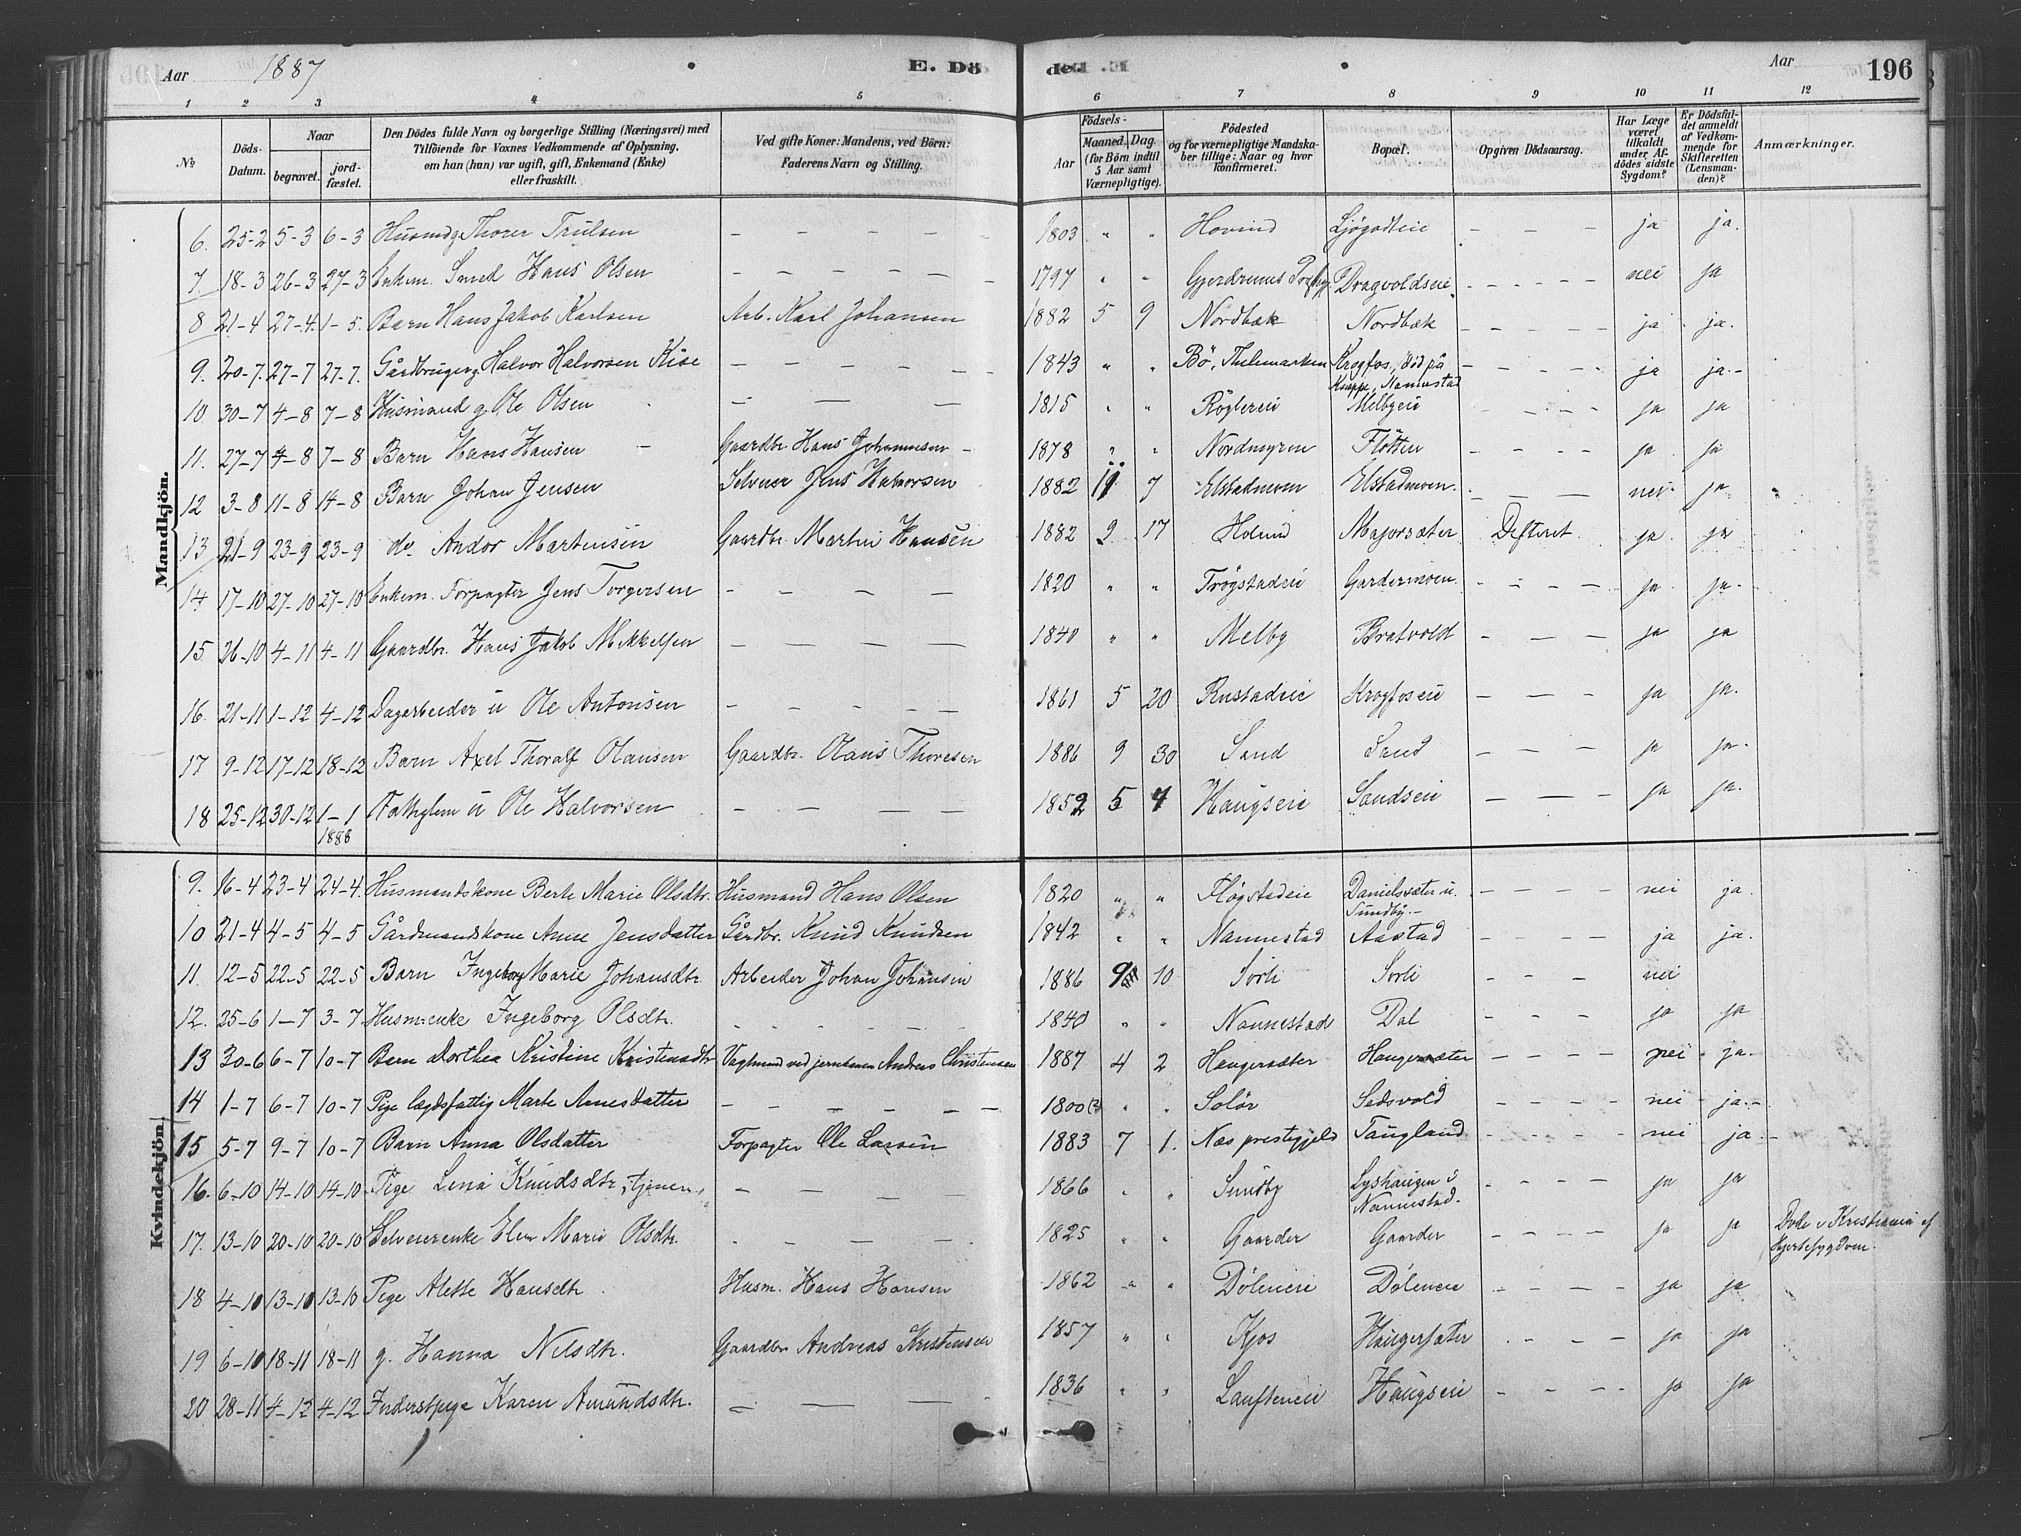 Aar 1887 E. Dö de. Aar 196
1 2 3 4 5 6 7 8 9 10 11 12
No
Döds-Datum.
Naar
begravet.
jord-fæstet.
Den Dödes fulde Navn og borgerlige Stilling (Næringsvei) med
Tilföiende for Voxnes Vedkommende af Oplysning,
om han (hun) var ugift, gift, Enkemand (Enke)
eller fraskilt.
Ved gifte Koner: Mandens, ved Börn:
Faderens Navn og Stilling.
Födsels-
Aar
Maaned. Dag.
(for Börn indtil
5 Aar samt
Værnepligtige).
Födested
og for værnepligtige Mandska-
ber tillige: Naar og hvor
konfirmeret.
Bopæl.
Opgiven Dödsaarsag.
Har Læge
været
tilkaldt
under Af-
dödes sidste
Sygdom?
Er Dödsfal-
det anmeldt
af Vedkom-
mende for
Skifteretten
(Lensman-
den)?
Anmærkninger.
Mandkjön.
6. 25-2 5-3 6-3 Husmdg Thorer Trulsen – – – – – 1803 " " Hovind Ljøgodteie – – – ja ja.
7. 18-3 26-3 27-3 Enkem. Smed Hans Olsen – – – – – 1797 " " Gjerdrums Dragvoldseie – – – – – nei ja
8 21-4 27-4 1-5. Barn Hans Jakob Karlsen Arb. Karl Johansen 1882 5 9 Nordbæk Nordbæk – – – – ja ja.
9. 20-7. 27-7 27-7. Gårdbruger g. Halvor Halvorsen Kise – – – – – 1843 " " Bö, Thelemarken Krogfos, död på
Knappe, Nannestad – – – – ja ja.-
10 30-7 4-8 7-8 Husmand g. Ole Olsen – – – 1815 " " Röglereie Melbyeie – – – – ja ja
11. 27-7 4-8 7-8 Barn Hans Hansen Gaardbr Hans Johannesen 1878 " " Nordmyren Flötten – – – – ja ja
12 3-8 11-8 14-8 Barn Johan Jensen Selveier Jens Halvorsen 1882 11 7 Elstadmoen Elstadmoen. – – – nei ja
13 21-9 23-9 23-9 do. Andor Martinsen Gaardbr. Martin Hansen 1882 2 17 Holum Majorsæter Difterit ja ja
14. 17-10 27-10 27-10 Enkem. Forpagter Jens Torgersen – – – – 1820 " " Trögstadeie Gardermoen. – – – – ja ja.
15. 26-10 4-11 4-11 Gaardbr. Hans Jakob Mikkelsen – – – – 1840 " " Melby Bratvold – – – ja ja
16. 21-11 1-12 4-12 Dagarbeider u Ole Antonsen – – – – – 1861 5 20 Rustadeie Krogfoseie – – – ja ja.
17 9-12 17-12 18-12 Barn Axel Thoralf Olausen Gaardbr. Olaus Thoresen 1886 9 30 Sand Sand – – – ja ja.
18 25-12 30-12 1-1
1888 Fattiglem u Ole Halvorsen – – – – 1852 5 4 Haugseie Sandseie – – – ja ja.
Kvindekjön.
9. 16-4 23-4 24-4. Husmandskone Berte Marie Olsdtr. Husmand Hans Olsen 1820 " " Flögstadeie Danielsæter u.
Sundby. – – – – – nei ja.
10 21-4 4-5 4-5 Gårdmandskone Anne Jensdatter Gårdbr. Knud Knudsen 1842 " " Nannestad Aastad – – – – ja ja.
11. 12-5 22-5 22-5 Barn Ingeborg Marie Johansdtr. Arbeider Johan Johansen 1886 9 10 Sörli Sörli – – – nei
12. 25-6 1-7 3-7 Husm-enke Ingeborg Olsdtr. – – – – – 1840 " " Nannestad Dal ja ja
13 30-6 6-7 10-7 Barn Dorthea Kristine Kristensdtr Vagtmand ved jernbanen Andreas Christensen 1887 4 2 Haugersæter Haugersæter – – – – nei ja.
14 1-7 6-7 10-7 Pige lægdsfattig Marte Arnesdatter – – – – – – 1800(?) " " Solör Sedsvold – – – – nei ja.-
15 5-7 9-7 10-7 Barn Anna Olsdatter Forpagter Ole Larsen 1883 7 1. Næs prestegjeld Taugland – – – – nei ja.
16. 6-10 14-10 14-10 Pige Lena Knudsdtr, tjener, – – – – 1866 " " Sundby Lyshaugen i
Nannestad. – – – – ja ja
17. 13-10 20-10 20-10 Selveierenke Elen Marie Olsdtr. – – – – 1825 " " Gaarder Gaarder – – – – ja ja Döde i Kristiania af
Hjertesygdom.
18 4-10 13-10 13-10 Pige Alette Hansdtr. Husm. Hans Hansen 1862 " " Döleneie Döleneie – – – – ja ja
19 6-10 18-11 18-11 g. Hanna Nilsdtr. Gaardbr Andreas Kristensen 1857 " " Kjos Haugersæter – – – – ja ja
20 28-11 4-12 4-12 Inderstpige Karen Amundsdtr. – – – – 1836 " " Haugseie – – – – ja ja